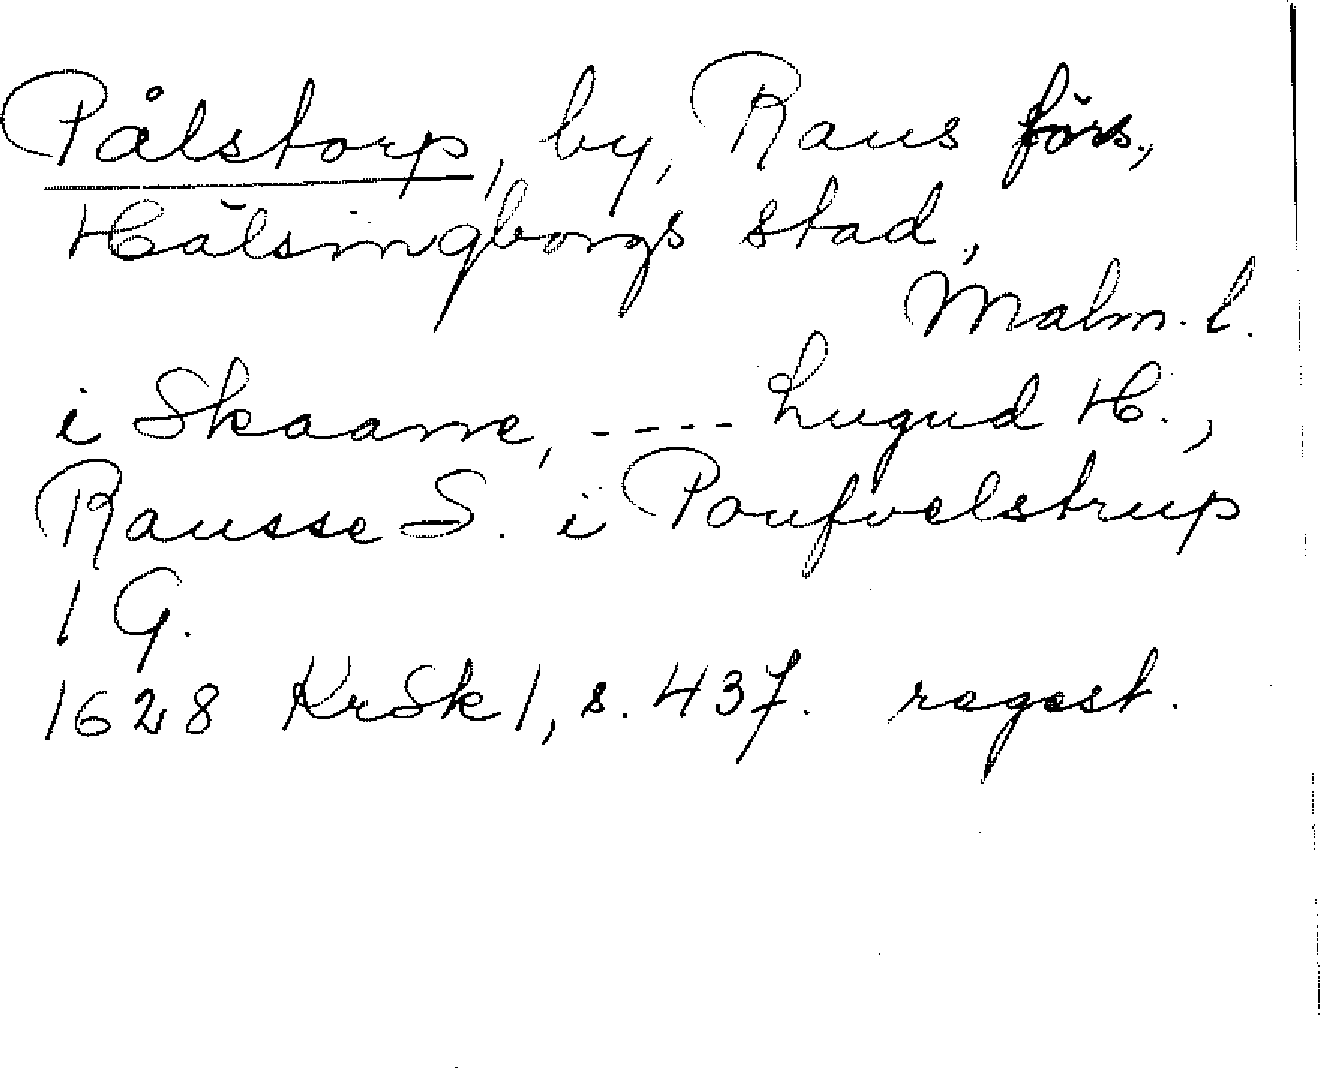 Pålstorp, by, Raus förs.,
Hälsingborgs stad,
Malm. l.
i Skaane, ---- Lugud H.,
Rausse S. i Poufvelstrup
1 G.
1628 KrSk 1, s. 437. regest.